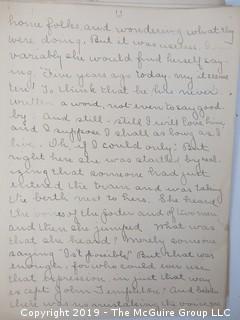 11
home folks, and wondering what they
were doing. But it was useless. In-
variably she would find herself say-
ing. Five years ago today. my it seems
ten! To think that he has never
written a word, not even to say good-
by! And still - still I will love him
and I suppose I shall as long as I
live. Oh, if I could only! But
right here she was startled by real-
izing that someone had just
entered the train and was taking
the berth next to hers. She heard
the voices of the porter and of two men
and then she jumped. What was
that she heard? Merely someone
saying "Is't possible" But that was
enough, for who could ever use
that expression in just that way
as Capt John Templeton. And besides
there was no mistaking the voice
Copyright 2019 - The Quick Group